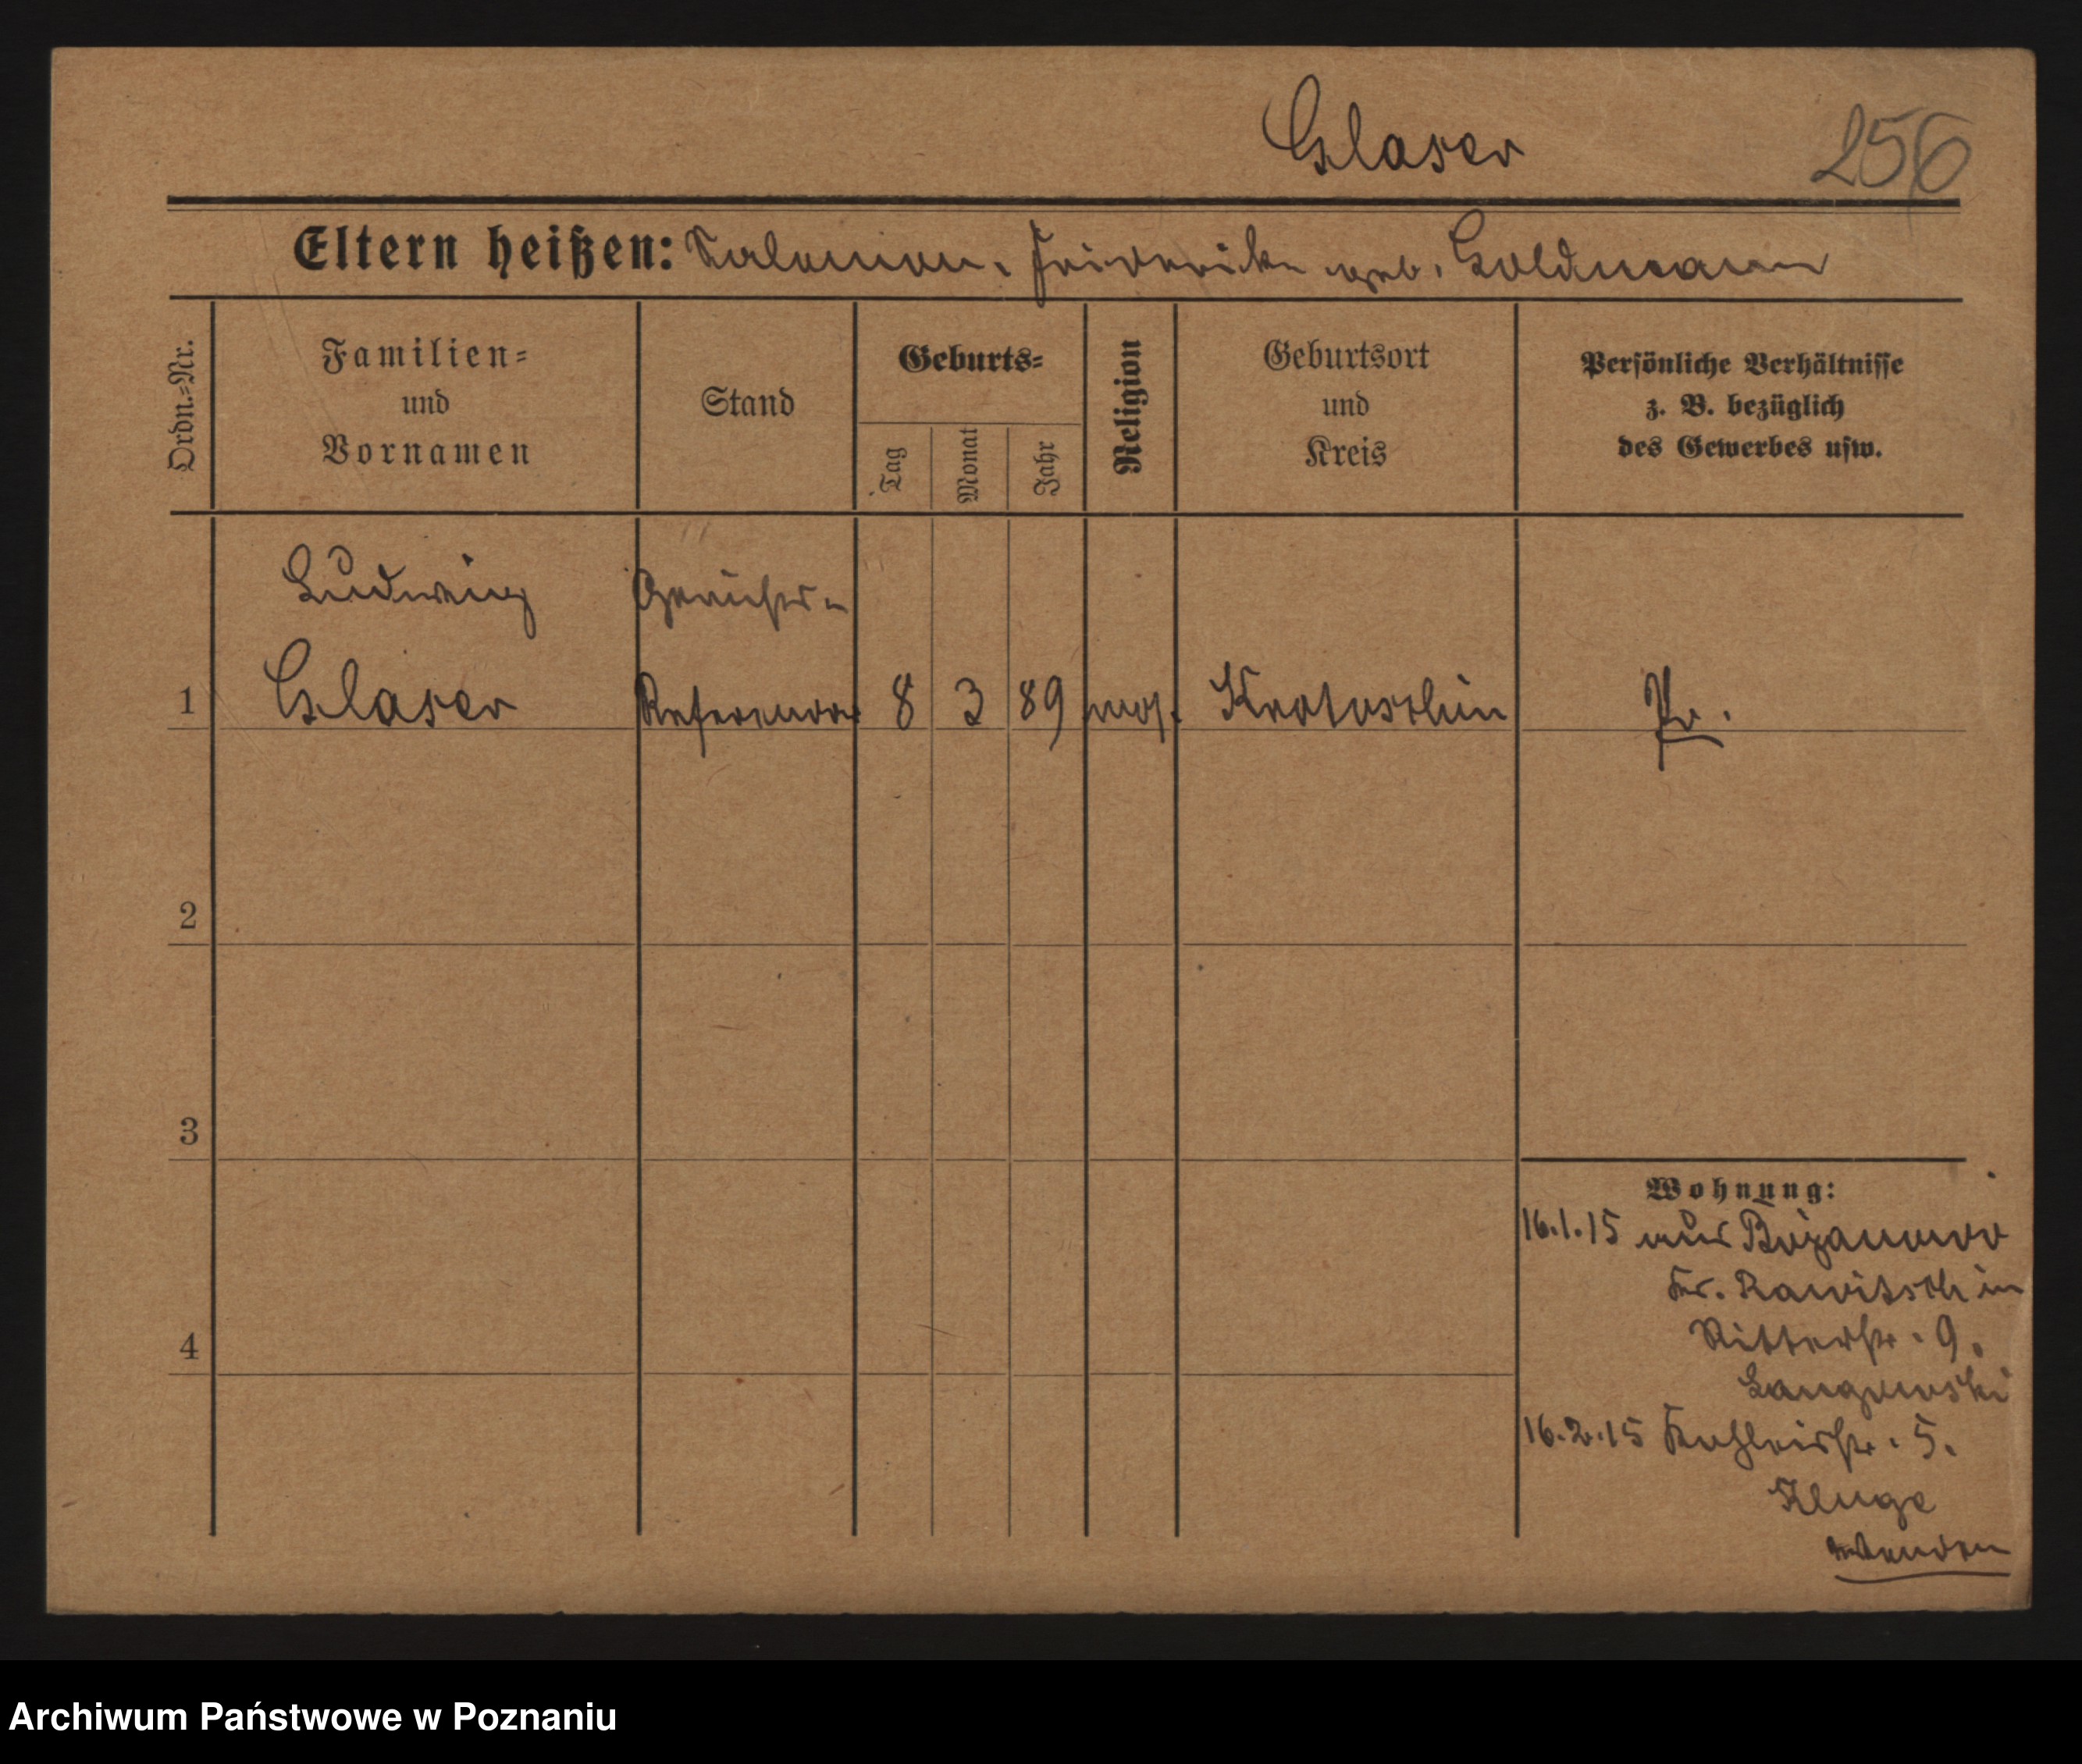 Glaser 256
Eltern heißen: Salomon. Friederike geb. Goldmann
Ordn.=Nr.
Familien=
und
Vornamen
Stand
Geburts=
Tag
Monat
Jahr
Religion
Geburtsort
und
Kreis
Persönliche Verhältnisse
z. B. bezüglich
des Gewerbes usw.
Ludwig Gerichts-
1 Glaser Referendar 8 3 89 mos. Krotoschin Pr.
2
3
4
Wohnung:
16.1.15 aus
Kr. Rawitsch in
Ritterstr. 9.
16.2.15 Kohleisstr. 5.
Kluge
wenden
Archiwum Państwowe w Poznaniu